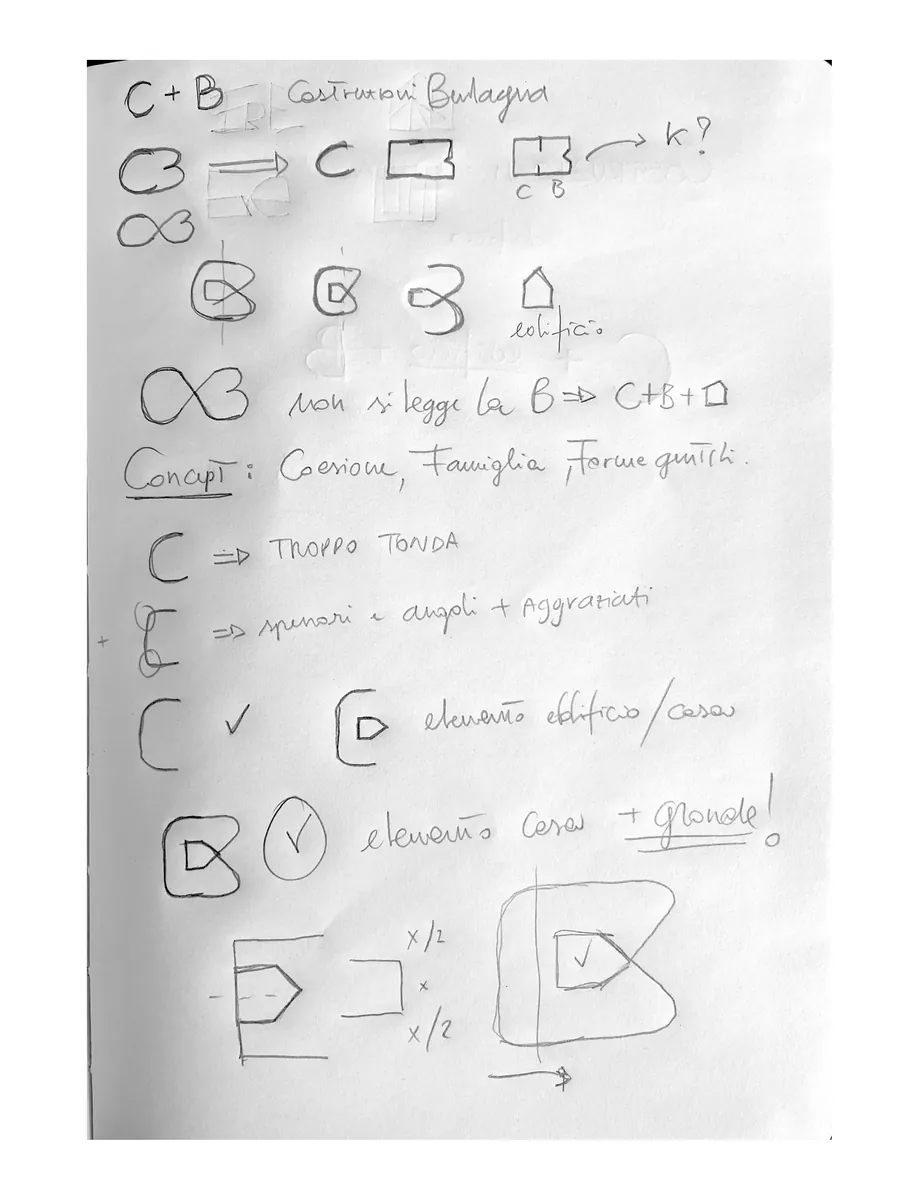 C + B Costruzioni Bulagna
CB ⇒ C K?
C B
edificio
non si legge la B ⇒ C+B+
Concept: Coesione, Famiglia, Forme gentili.
C ⇒ TROPPO TONDA
⇒ spessori e angoli + Aggraziati
C ✓ elemento edificio/casa
✓ elemento casa + grande!
x/2
x
x/2
✓